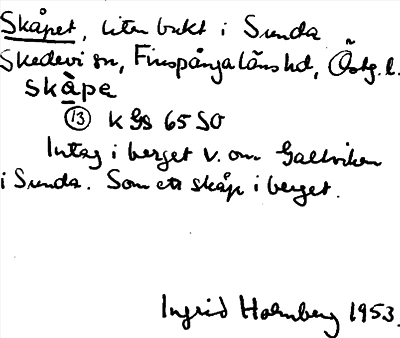 Skåpet, liten bukt i Sunda
Skedevi sn, Finspånga läns hd, Östg. l.
skå̀pe
(13) k Gs 65 SO
Intag i berget v. om Gallviken
i Sunda. Som ett skåp i berget.
Ingrid Holmberg 1953.